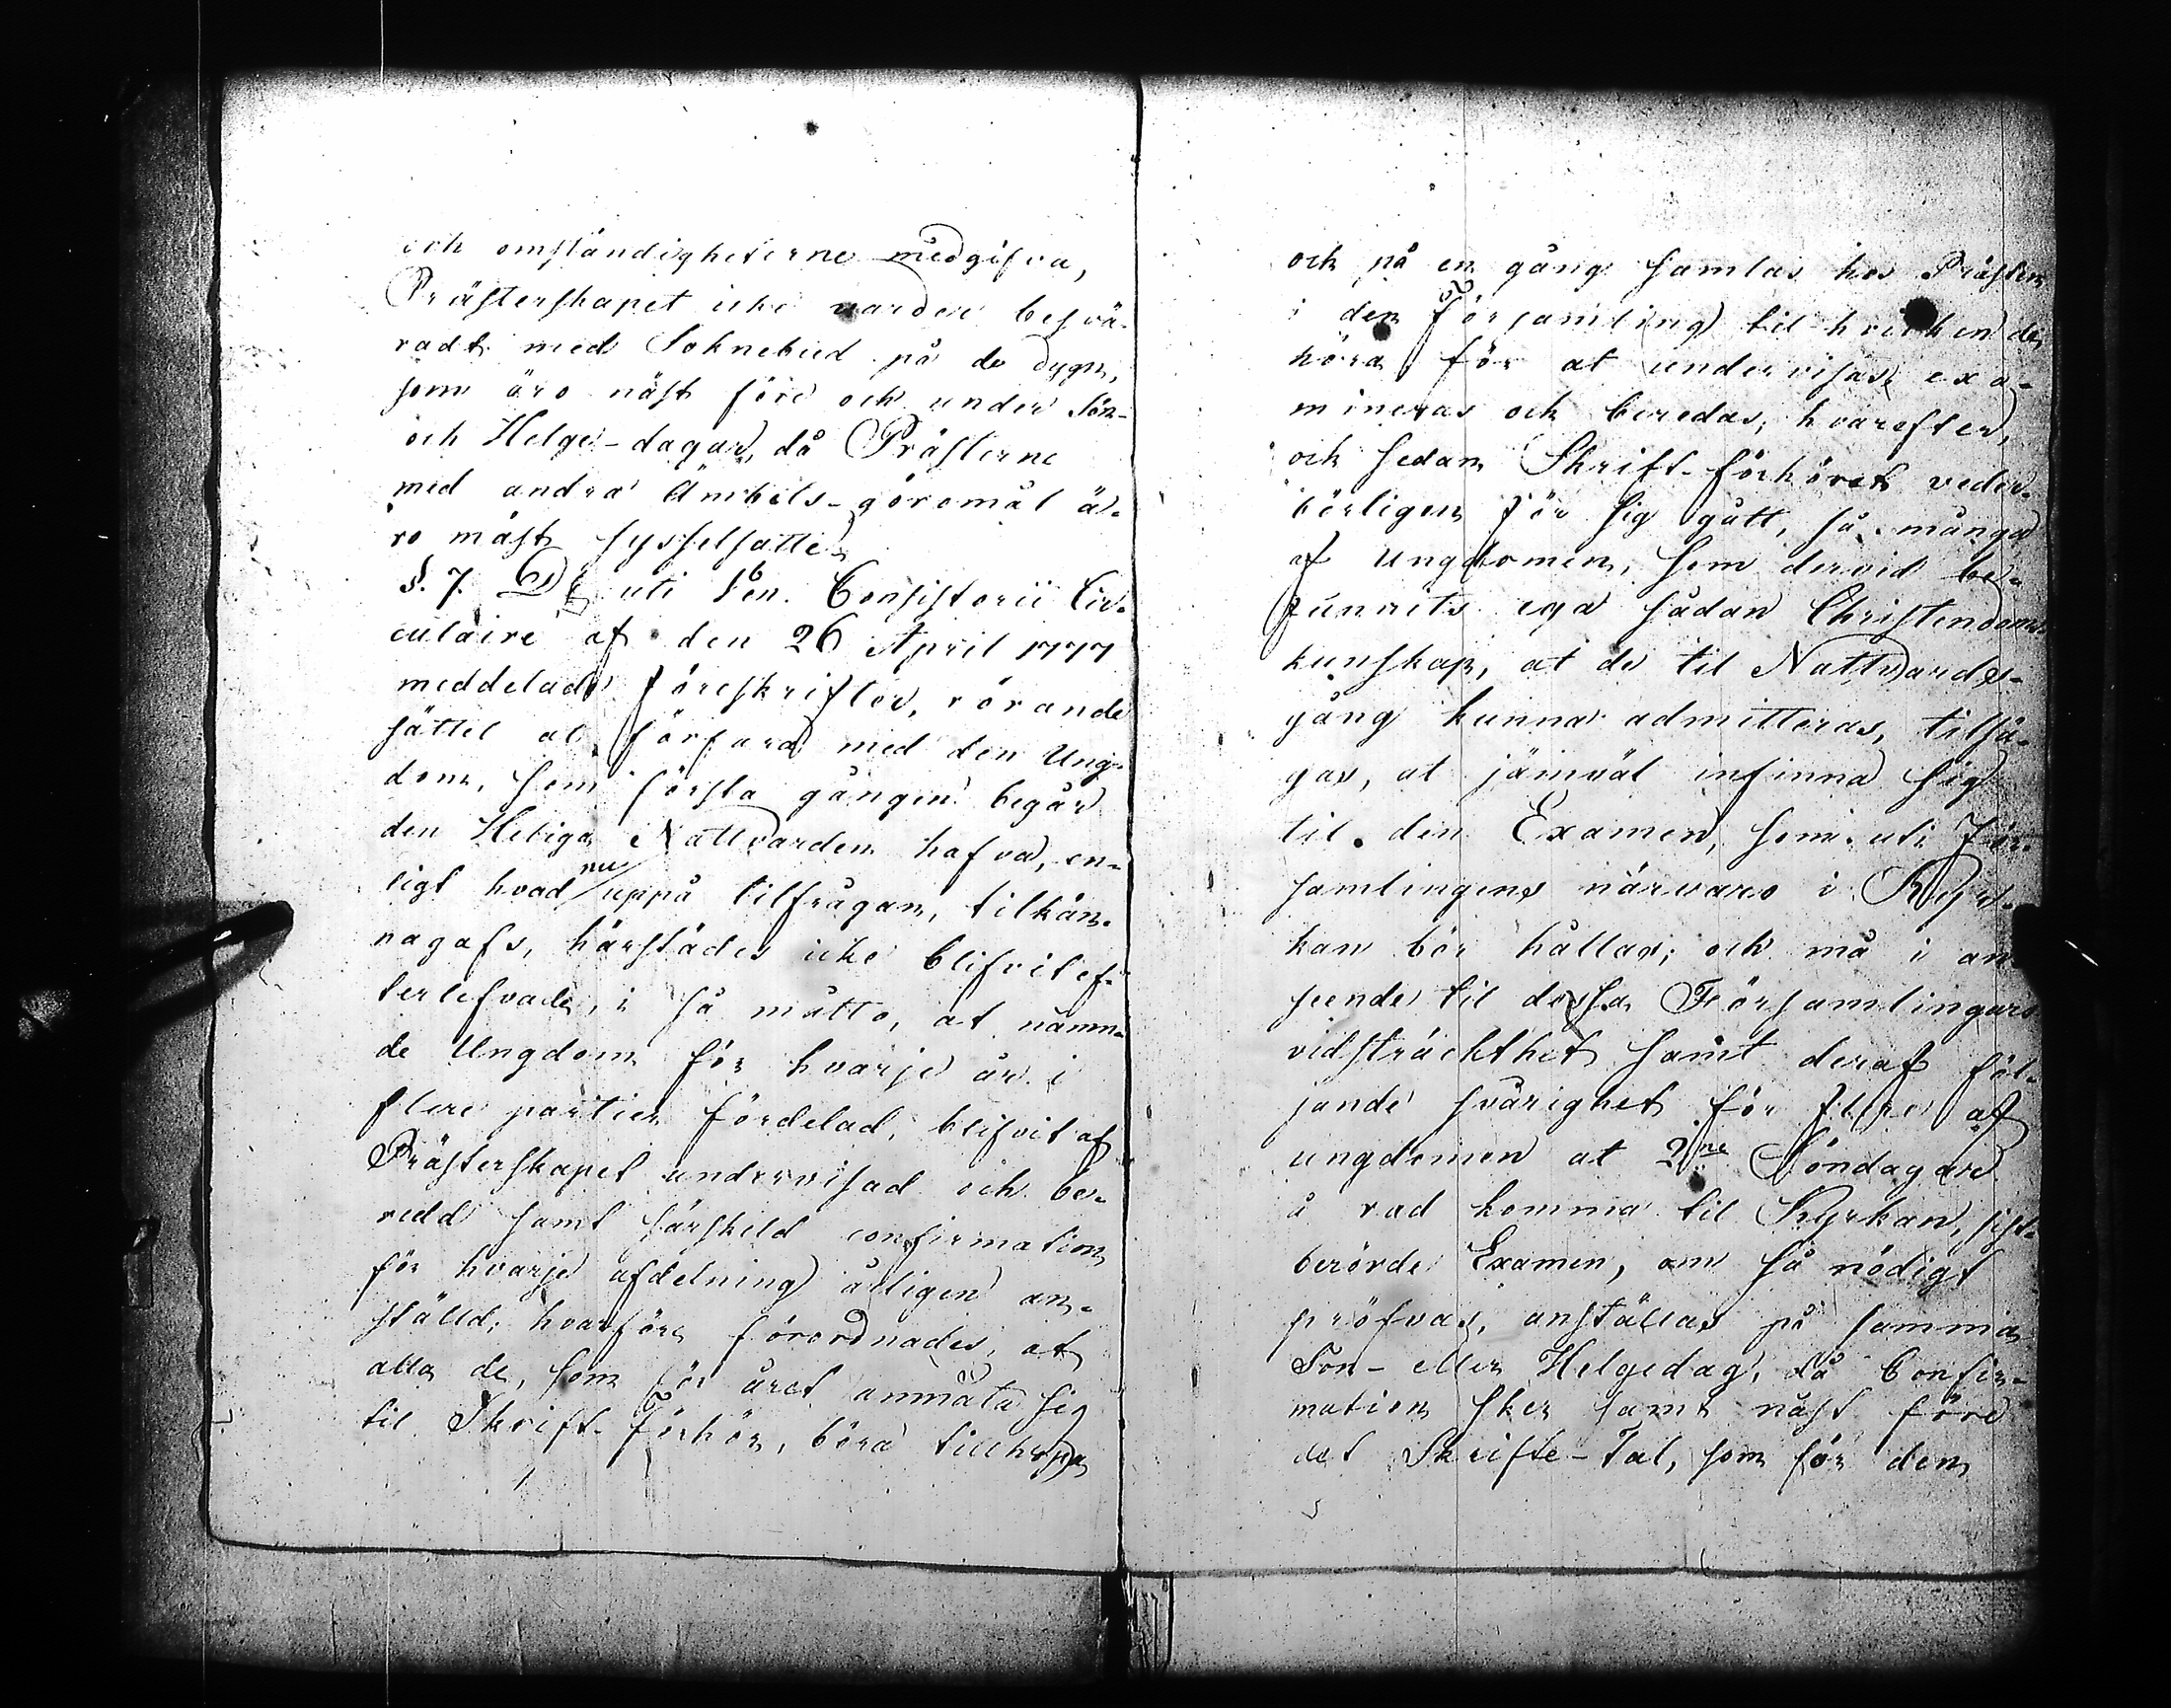 och omständigheterne medgifva,
Prästerskapet icke varder besvä-
radt med Soknebud på de dygn,
som äro näst före och under Sön-
och Helge-dagar, då Prästerne
med andra Ämbets-göromål ä-
ro mäst sysselsatte.
§. 7. De uti Ven. Consistorii Cir-
culaire af den 26 April 1777
meddelade föreskrifter, rörande
sättet at förfara med den Ung-
dom, som första gången begår
den Heliga Nattvarden hafva, en-
ligt hvad nu uppå tilfrågan, tilkän-
nagafs, härstädes icke blifvit ef-
terlefvade, i så måtto, at nämn-
de Ungdom för hvarje år i
flere partier fördelad, blifvit af
Prästerskapet undervisad och be-
redd samt särskild confirmation
för hvarje afdelning årligen an-
ställd; hvarföre förordnades, at
alla de, som för året anmäla sig
til Skrift-förhör, böra tillhopa
och på en gång samlas hos Prästen
i den församling til hvilken de
höra för at undervisas, exa-
mineras och beredas; hvarefter,
och sedan Skrift-förhöret veder-
börligen för sig gått, så många
af Ungdomen, som dervid be-
funnits ega sådan Christendoms
kunskap, at de til Nattvards-
gång kunna admitteras, tilsä-
gas, at jämväl infinna sig
til den Examen, som uti För-
samlingens närvaro i Kyr-
kan bör hållas; och må i an-
seende til dessa Församlingars
vidsträckthet samt deraf föl-
jande svårighet för flere af
ungdomen at 2ne Söndagar
å rad komma til Kyrkan, sist-
berörde Examen, om så nödigt
pröfvas, anställas på samma
Sön- eller Helgedag, då Confir-
mation sker samt näst före
det Skrifte-Tal, som för den